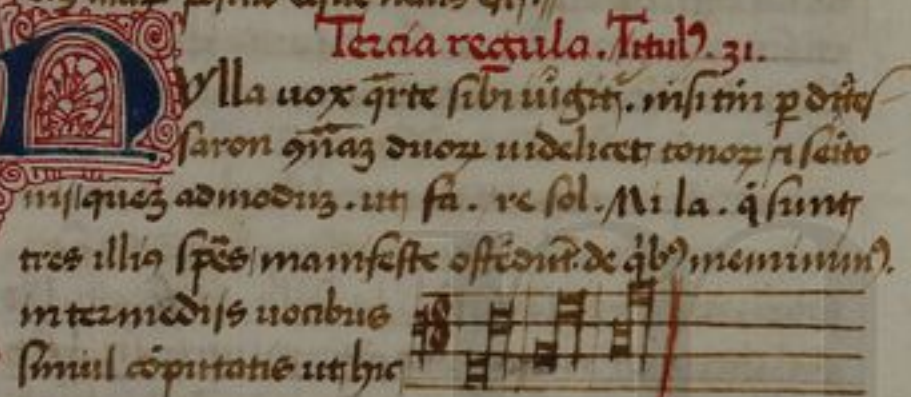 Tercia regula. Titul9. 31.
Nulla uox q̄rte sibi iu̇git᷑. nisi tm̄ p dyates
saron 9n̄aꝫ duoꝝ uidelicet tonoꝝ ⁊ seito
nijquez admoduꝫ. ut fa. re sol. Mi la. q̇ sunt
tres illi9 sp̄es manifeste ostēdu̅t. de q̇b9 meminim9.
intermedijs uocibus
simul cōputatis ut hic